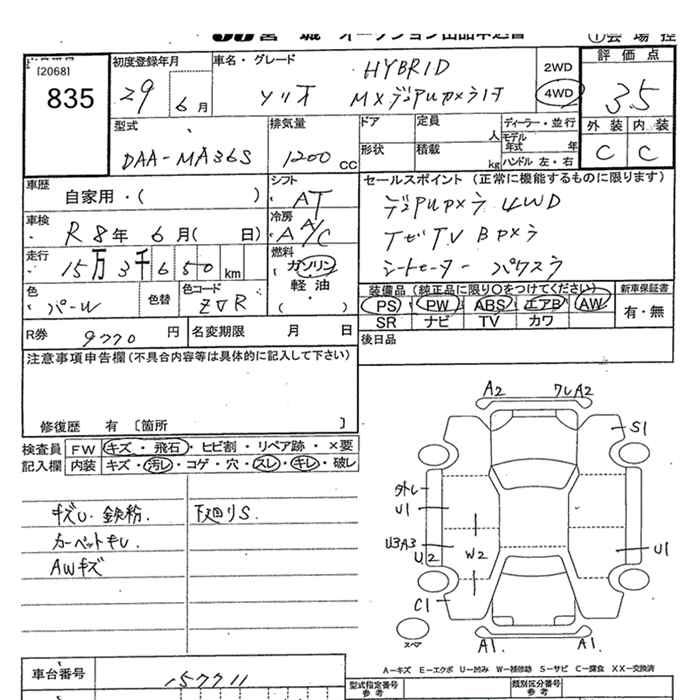 JU 宮城 オークション出品申込書
①会場控
[2068]
835
初度登録年月
29 6月
車名・グレード
HYBRID
ソリオ MXデュアルカメラ付
2WD
4WD
評価点
3.5
型式
DAA-MA36S
排気量
1200 CC
ドア
定員
人
形状
積載
kg
ディーラー・並行
モデル年式 年
ハンドル 左・右
外装 内装
C C
車歴
自家用・( )
シフト
AT
セールスポイント(正常に機能するものに限ります)
車検
R8年 6月( 日)
冷房
A A/C
デュアルカメラ 4WD
ナビTV Bカメラ
シートヒーター パワスラ
走行
15万3千650km
燃料
ガソリン
軽油
・
( )
色
パール
色替
色コード
ZVR
装備品(純正品に限り〇をつけてください)
新車保証書
PS PW ABS エアB AW
SR ナビ TV カワ
有・無
R券
9770円
名変期限 月 日
後日品
注意事項申告欄(不具合内容等は具体的に記入して下さい)
修復歴 有 〔箇所 〕
検査員記入欄
FW キズ・飛石・ヒビ割・リペア跡・×要
内装 キズ・汚レ・コゲ・穴・スレ・キレ・破レ
キズU. 鉄粉.
下廻りS.
カーペットキレ
AWキズ
A2
ワレA2
S1
外レ
U1
U3A3
U2
W2
U1
C1
A1.
A1.
スペア
A-キズ E-エクボ U-凹み W-補修跡 S-サビ C-腐食 XX-交換済
車台番号
157711
型式指定番号
参考
類別区分番号
参考